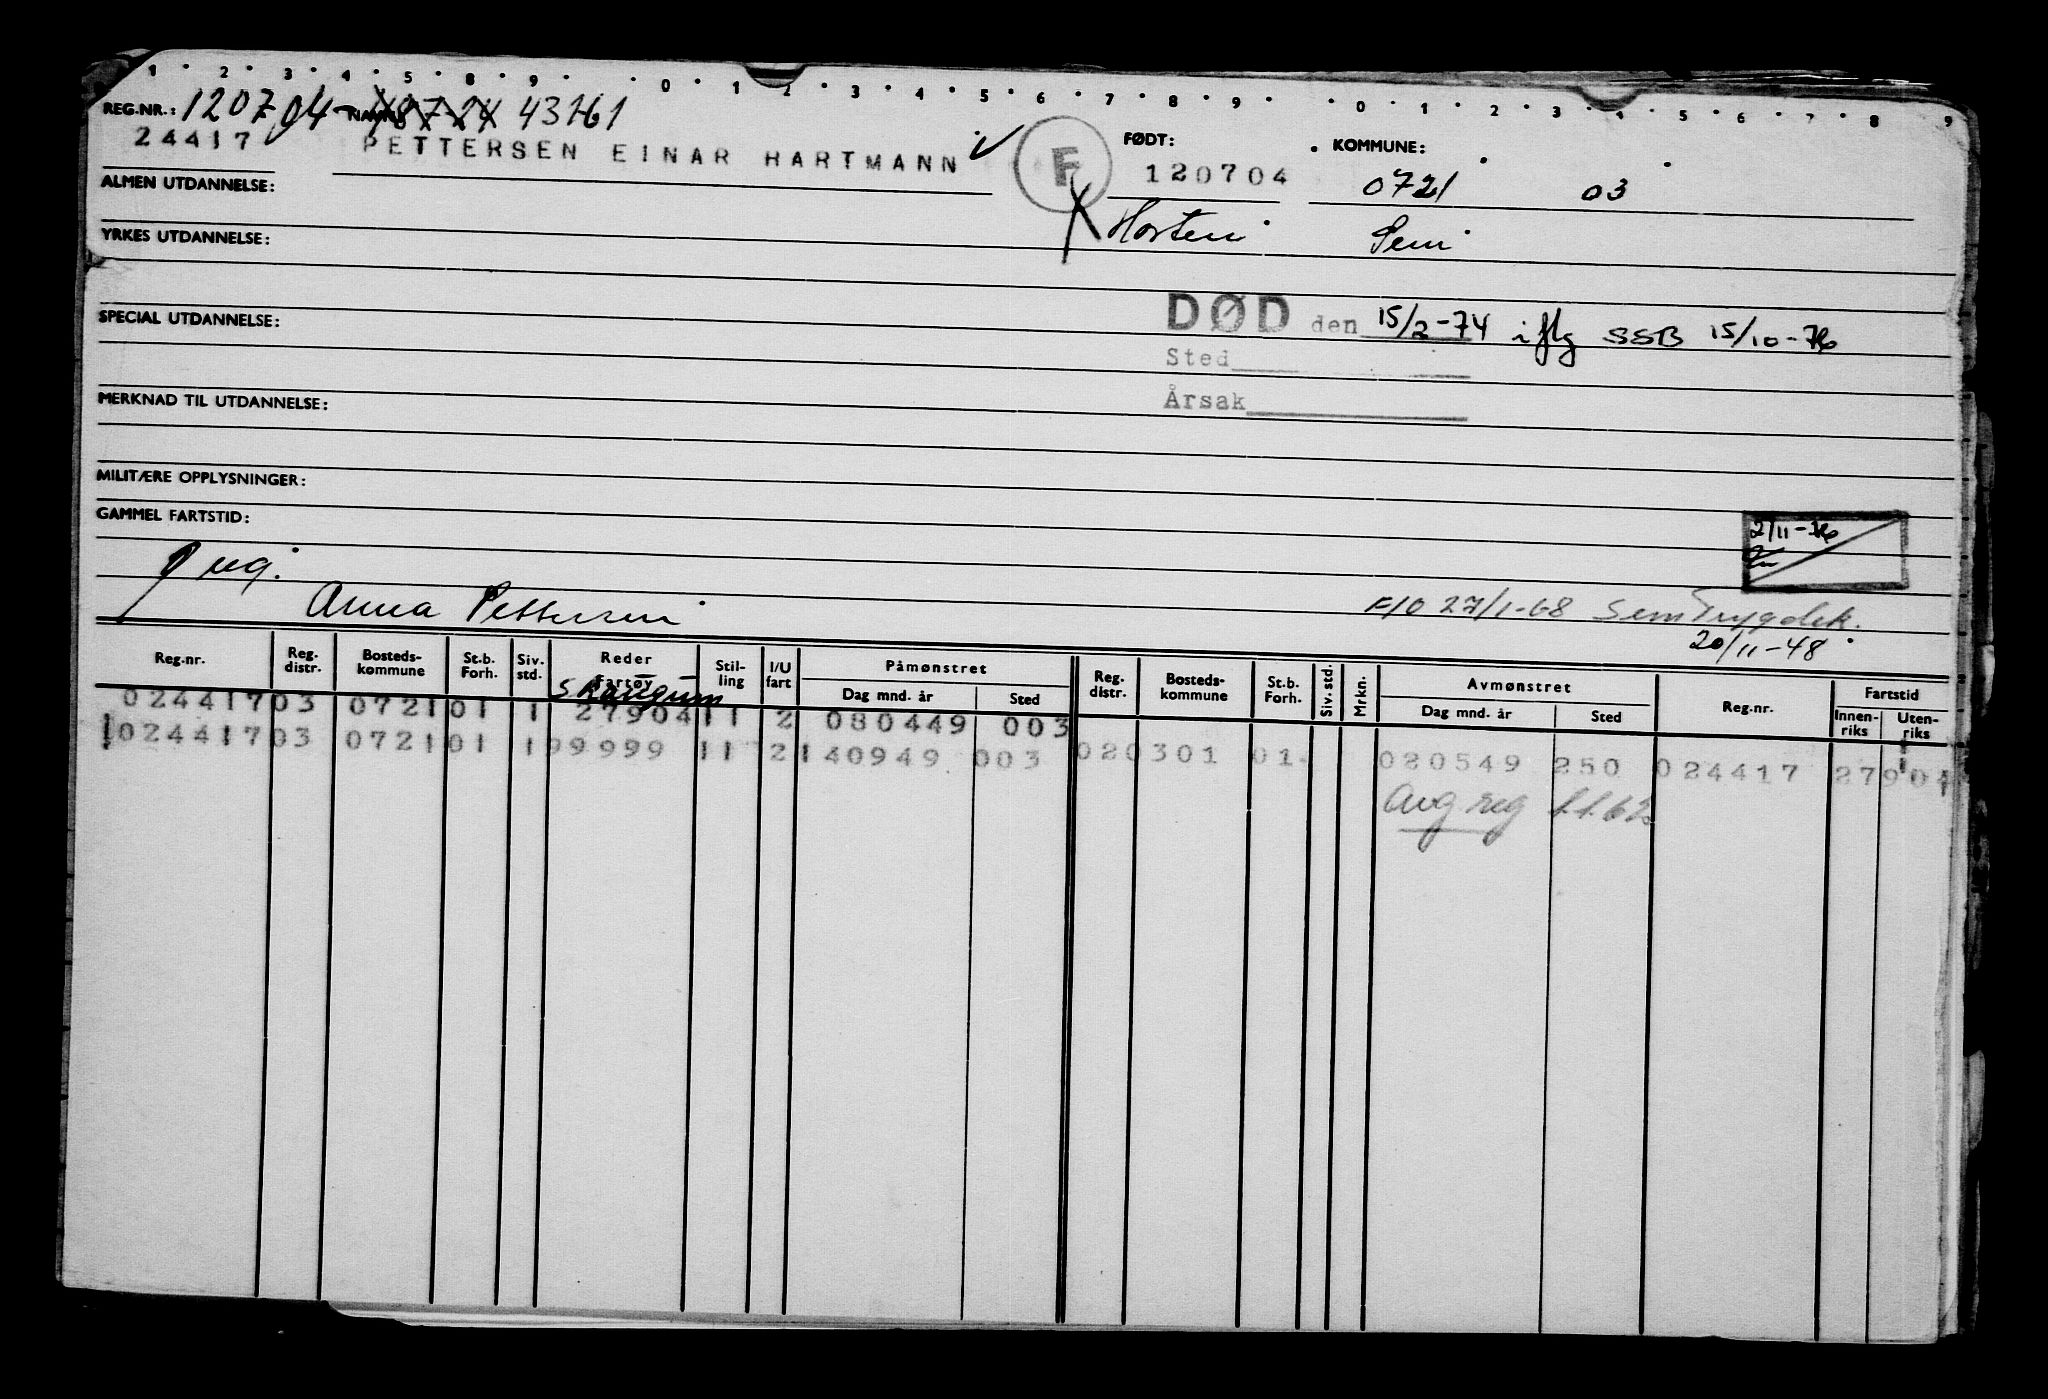 1 2 3 4 5 8 9 0 1 2 3 4 5 6 7 8 9 0 1 2 3 4 5 6 7 8 9
REG.NR.: 120704- 48724 43761
24417 PETTERSEN EINAR HARTMANN ✓ F FØDT: 120704 KOMMUNE: 0721 03
ALMEN UTDANNELSE:
X Horten Sem
YRKES UTDANNELSE:
DØD den 15/2-74 iflg SSB 15/10-76
SPECIAL UTDANNELSE:
Sted
Årsak
MERKNAD TIL UTDANNELSE:
MILITÆRE OPPLYSNINGER:
GAMMEL FARTSTID:
2/11-76
ug.
Anna Pettersen
F10 27/1-68 Sem Trygdek.
20/11-48
Reg.nr. Reg. distr. Bosteds- kommune St.b. Forh. Siv. std. Reder Fartøy Stil- ling I/U fart Påmønstret Dag mnd. år Sted Reg. distr. Bosteds- kommune St.b. Forh. Siv. std. Mrkn. Avmønstret Dag mnd. år Sted Reg.nr. Fartstid Innen- riks Uten- riks
Skaugum
024417 03 0721 01 1 27904 11 2 080449 003
1024417 03 0721 01 1 99999 11 2 140949 003 02 0301 01 020549 250 024417 27904
Avg reg 1.1.62